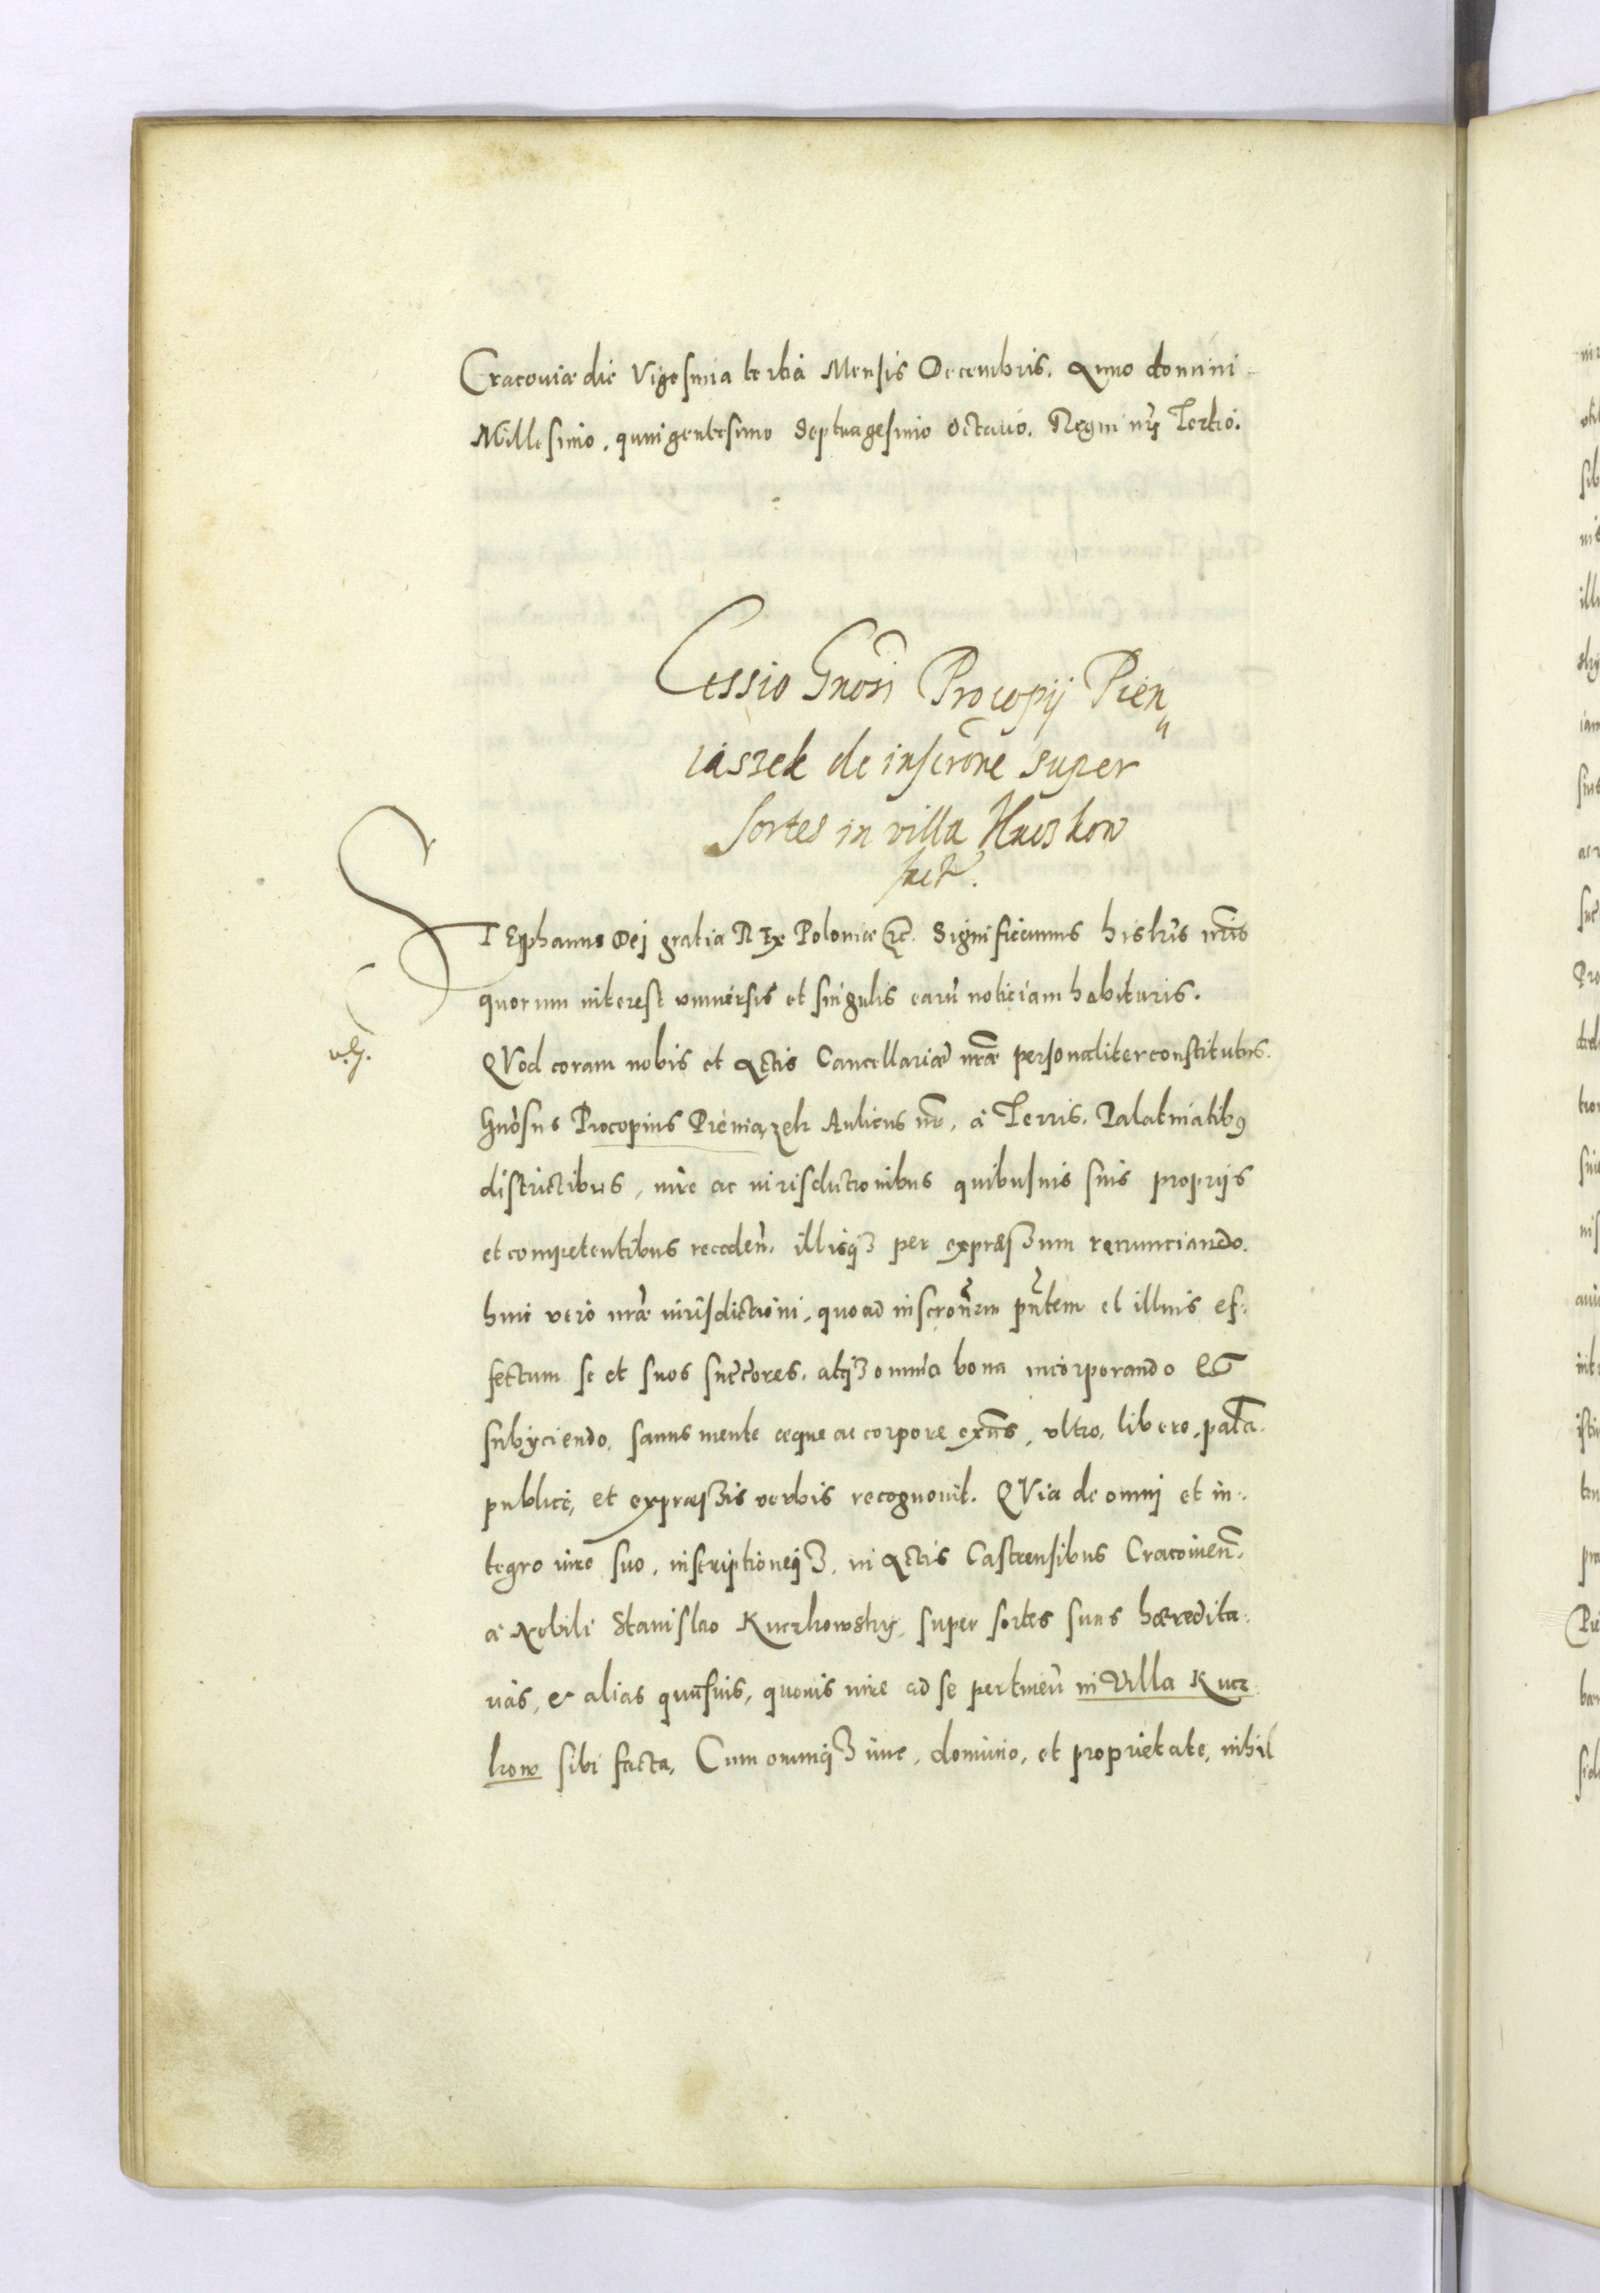 Cracoviæ die Vigesima tertia Mensis Decembris. Anno domini
Millesimo, quingentesimo Septuagesimo Octavo. Regni nrj Tertio.
Cessio Gnosi Procopij Pien„
iaszek de inscrone super
sortes in villa Kuczkow
fact.
STEphanus Dej gratia REx Poloniæ etc. Significamus his lris nris
quorum interest vniversis et singulis earũ noticiam habituris.
QVod coram nobis et Actis Cancellariæ nræ personaliter constitutus.
Gnosus Procopius Pieniązek Aulicus nr, à Terris. Palatinatibus
districtibus, iure ac iurisdictionibus quibusuis suis proprijs
et competentibus receden. illisq3 per expræssum renunciando.
huic vero nræ iurisdictioni, quoad inscronem pntem et illius ef:
fectum se et suos succores, atq3 omnia bona incorporando ET
subÿciendo, sanus mente æque ac corpore exns, vltro, libere, palã.
publicè, et expræssis verbis recognouit. QVia de omnj et in:
tegro iure suo, inscriptioneq3, in Actis Castrensibus Cracovien.
à Nobili Stanislao Kuczkowsky, super sortes suas hæredita:
rias, et alias quasuis, quouis iure ad se pertinen in Villa Kucz
kow sibi facta, Cum omniq3 iure, dominio, et proprietate, nihil